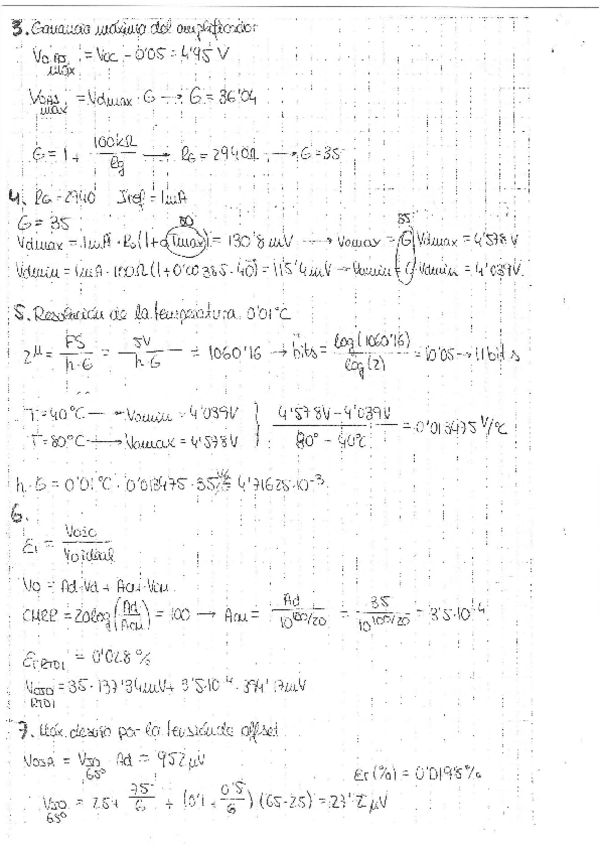 3. Ganancia máxima del amplificador
V_OAS max = Vcc - 0'05 = 4'95 V
V_OAS max = Vdmax · G → G = 36'04
G = 1 + 100kΩ/Rg → RG = 2940Ω → G = 35
4. RG = 2940 Iref = 1mA
G = 35
80
35
Vdmax = 1mA · Ro (1 + α Tmax) = 130'8 mV → Vomax = G Vdmax = 4'578 V
Vdmin = 1mA · 100Ω (1 + 0'00385 · 40) = 115'4 mV → Vomin = G Vdmin = 4'039V.
5. Resolución de la temperatura 0'01°C
2^M = FS/h·G = 5V/h·G = 1060'16 → bits = log(1060'16)/log(2) = 10'05 → 11 bits
T = 40°C → Vomin = 4'039V
T = 80°C → Vomax = 4'578V } 4'578V - 4'039V / 80° - 40°C = 0'013475 V/°C
h·G = 0'01°C · 0'013475 · 35 = 4'71625·10^-3
6.
Vo = Ad·Vd + Acm·Vcm
CMRR = 20log(Ad/Acm) = 100 → Acm = Ad/10^100/20 = 35/10^100/20 = 3'5·10^-4
= 0'028 %
= 35 · 137'34mV + 3'5·10^-4 · 394'17mV
7. Máx. desvío por la tensión de offset
VOSA = VSO 65° Ad = 952 μV
Er(%) = 0'0198%
VSO 65° = 25 + 75/G + (0'1 + 0'5/G) (65-25) = 27'2 μV